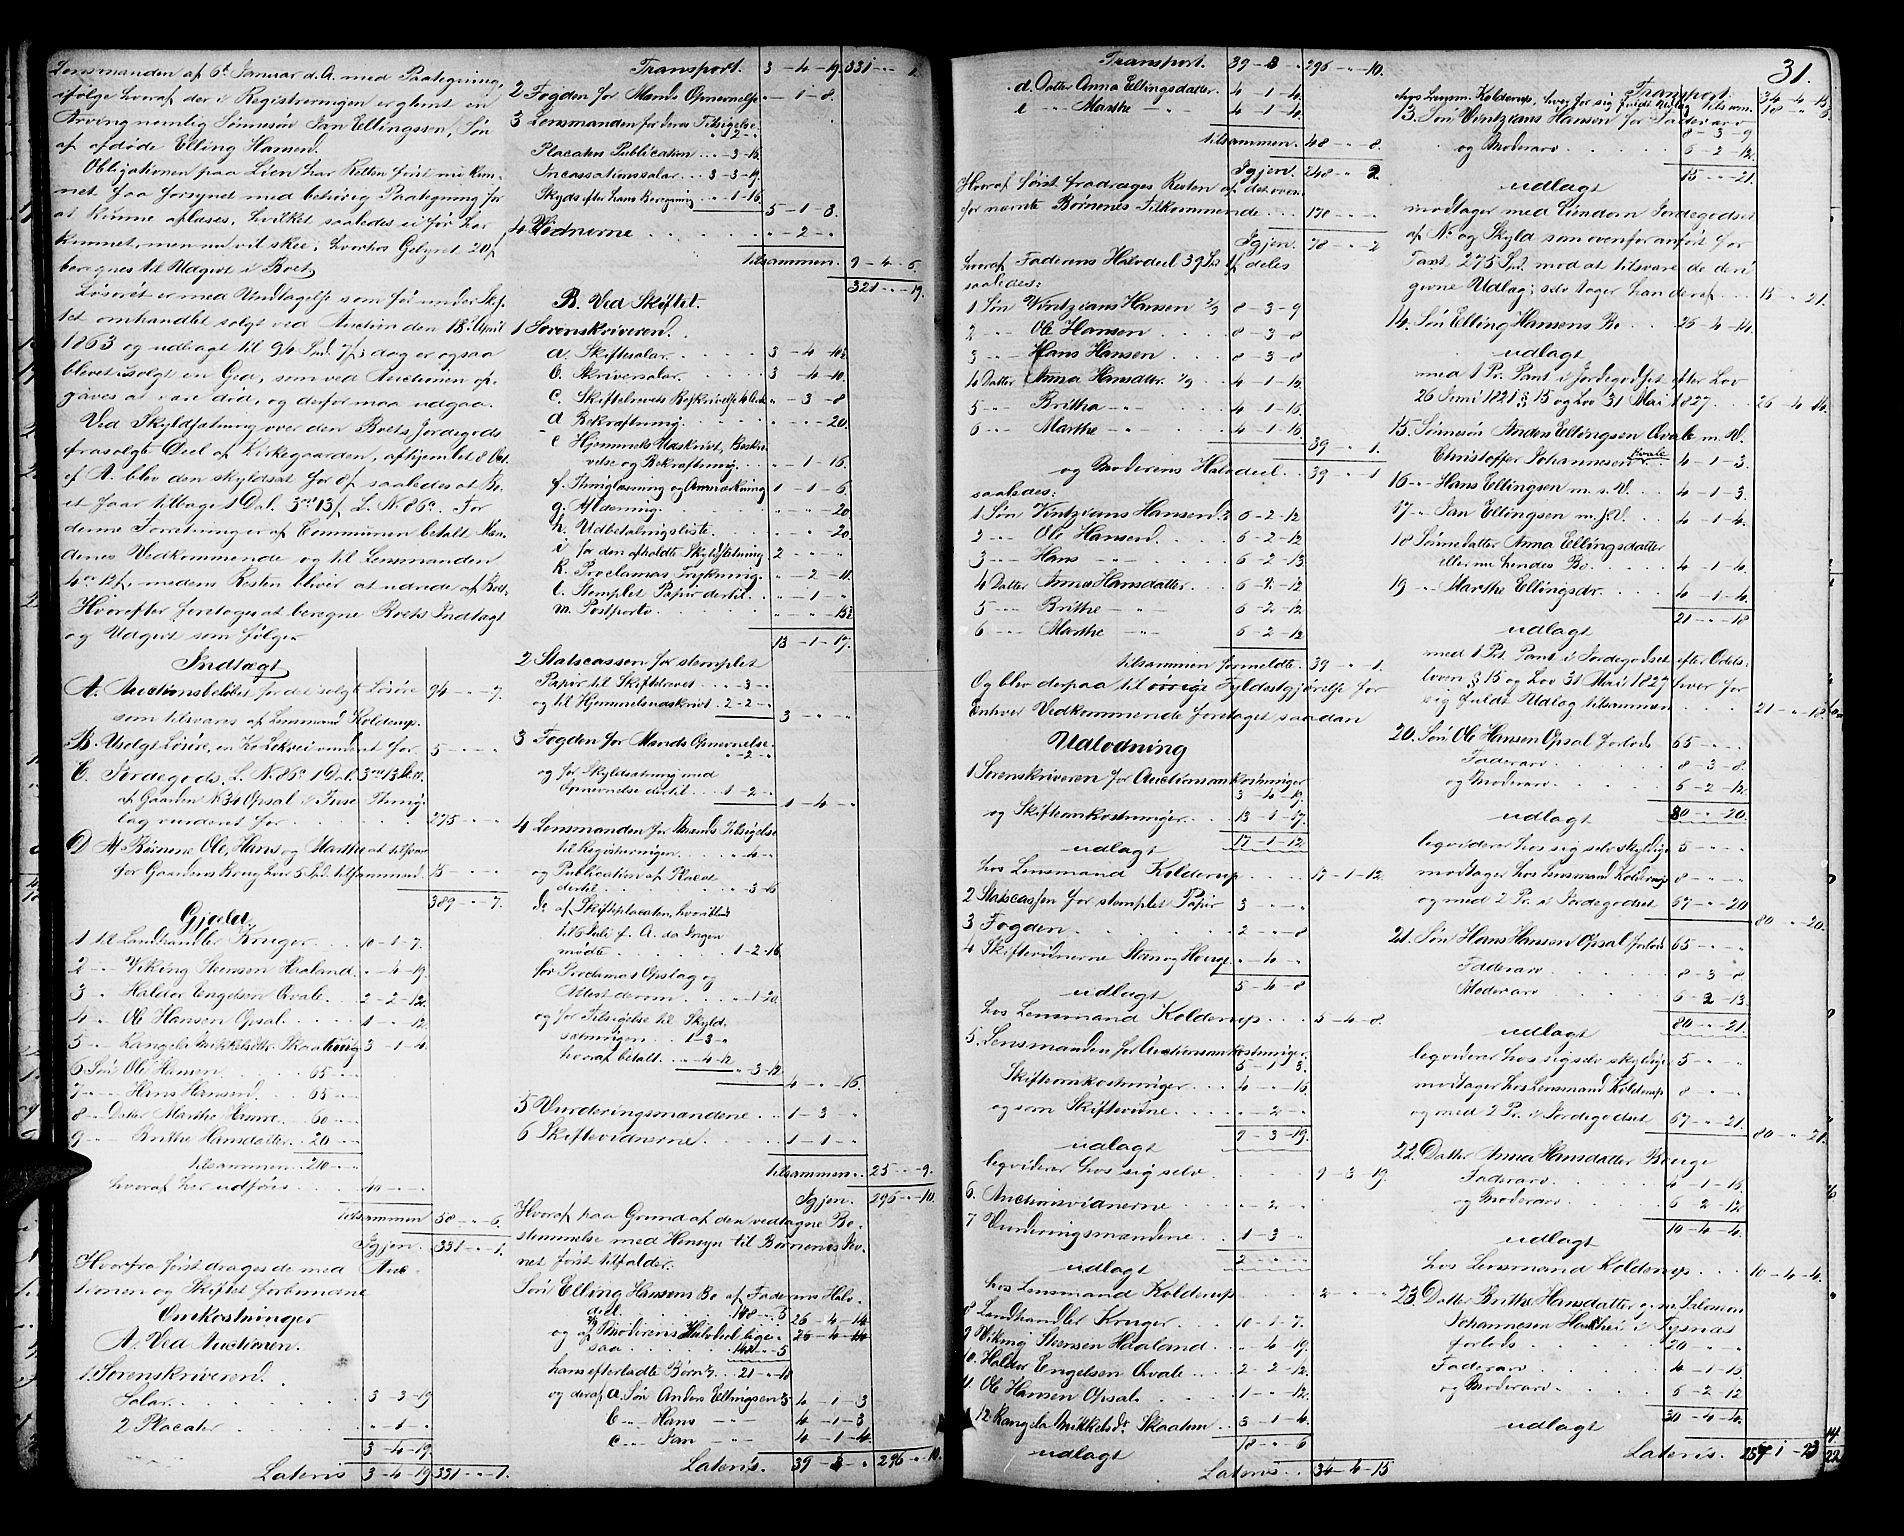 Lensmanden af 6t Januar d. A. med Paategning,
ifølge hvoraf der i Registreringen er glemt en
Arving nemlig Sønnesøn Jan Ellingsen, Søn
af afdøde Elling Hansen.
Obligationen paa Lien har Retten først nu kun-
net faa forsynet med behørig Paategning for
at kunne aflæses, hvilket saaledes ei før har
kunnet, men nu vil skee, hvorfor Gebyret 20 s
beregnes til Udgivt i Boet.
Løsøret er med Undtagelse som før under Skif-
tet omhandlet solgt ved Auction den 18 April
1863 og udbragt til 94 Spd. 7 s, dog er ogsaa
blevet usolgt en Ged, som ved Auctionen op-
gaves at være død, og derfor maa udgaa.
Ved Skyldsætning over den Boets Jordegods
frasolgte Deel af Kirkegaarden, afhjemlet 8 Oct.
f. A. blev den skyldsat for 8 s, saaledes at Bo-
et faar tilbage 1 Dal. 3 ort 13 s L. N. 86a. For
denne Forretning er af Communen betalt Mæn-
denes Vedkommende og til Lensmanden
4 ort 12 s, medens Resten bliver at udrede af Boet.
Hvorefter foretoges at beregne Boets Indtægt
og Udgivt som følger
Indtægt
A. Auctionsbeløbet for det solgte Løsøre 94 - " - 7.
som tilsvares af Lensmand Kolderup.
B. Usolgt Løsøre, en Ko Leksei vurderet for 5 - " - "
C. Jordegods L. N. 86a 1 Dal. 3 ort 13 s
af Gaarden N. 34 Opsal i Fuse Thing-
lag vurderet for 275 - " - "
D. Af Børnene Ole, Hans og Marthe at tilsvar
for Gaardens Brug hver 5 Spd. tilsammen 15 - " - "
389 - " - 7.
Gjæld
1 til Landhandler Krüger 10 - 1 - 7.
2 - " Viking Steensen Haaland " - 4 - 19.
3 " Haldor Engelsen Qvale 2 - 2 - 12.
4 " Ole Hansen Opsal 1 - " - 12.
5 " Rangela Mikkelsdtr. Skaathun 3 - 1 - 4.
6 Søn Ole Hansen 65 - " - "
7 - " - Hans Hansen 65 - " - "
8 Datter Marthe Hansd. 60 - " - "
9 - " - Brithe Hansdatter 20 - " - "
tilsammen 210 - " - "
hvoraf her udføres 40 - " - "
tilsammen 58 - " - 6.
Igjen 331 - " - 1.
Hvorfra først drages de med Auc-
tionen og Skiftet forbundne
Omkostninger
A. Ved Auctionen.
1. Sorenskriveren.
Salar 3 - 3 - 19
2 Placater " - 1 - "
3 - 4 - 19
Lateris 3 - 4 - 19 331 - " - 1.
Transport. 3 - 4 - 19. 331 - " - 1.
2 Fogden for Mænds Opnævnelse " - 1 - 8.
3 Lensmanden for deres Tilsigelse
" 2 - "
Placatens Publication " - 3 - 16.
Incassationssalar 3 - 3 - 19.
Skyds efter hans Beregning " - 1 - 16.
5 - 1 - 3.
4 Vidnerne " - 2 - "
tilsammen 9 - 4 - 6.
321 - " - 19.
B. Ved Skiftet.
1 Sorenskriveren.
a. Skiftesalar 3 - 4 - 10½
b. Skriversalar 3 - 4 - 10.
c. Skiftebrevets Beskrivelse " - 3 - 8
d Bekræftning " - " - 20.
e Hjemmels Udskrivt, Beskri-
velse og Bekræftning " - 1 - 16.
f. Thinglæsning og Anmærkning 1 - 1 - 6.
g. Aflæsning " - " - 20
h. Udbetalingsliste " - " - 20.
i for den afholdte Skyldsætning 2 - " - "
k. Proclamas Trykning " - 2 - 11.
l. Stemplet Papir dertil " - 1 - "
m. Postporto " - " - 15½
13 - 1 - 17.
2 Statscassen for stemplet
Papir til Skiftebrevet " - 3 - "
og til Hjemmelsudskrivt 2 - 2 - "
3 - " - "
3 Fogden for Mænds Opnævnelse
" - 2 - "
og for Skyldsætning med
Opnævnelse dertil 1 - 2 - "
1 - 4 - "
4 Lensmanden for Mænds Tilsigelse
til Registreringen " - 4 - "
og Publication af Placat
dertil " - 3 - 16
do af Skifteplacaten, hvorved
til 6 Juli f. A. da Ingen
mødte 1 - 2 - 16
for Proclamas Opslag og
Attest derom " - 1 - 20
og for Tilsigelse til Skyld-
sætningen 1 - 3 - "
hvoraf betalt " - 4 - 12
" - 3 - 12
4 - " - 16.
5 Vurderingsmændene 1 - 3 - "
6 Skiftevidnerne 1 - 1 - "
tilsammen 25 - " - 9.
Igjen. 296 - " - 10.
Hvoraf paa Grund af den vedtagne Be-
stemmelse med Hensyn til Børnenes Jev-
net først tilfalder.
Søn Elling Hansens Bo af Faderens Halv-
deel 148 - " - 5 26 - 4 - 14
og af Moderens Halvdeel lige-
saa 148 - " - 5 26 - 4 - 14
hans efterladte Børn 21 - " - 18
og deraf a. Søn Anders Ellingsen 4 - 1 - 3
b - " Hans - " - 4 - 1 - 3.
c - " Jan - " - 4 - 1 - 4.
Lateris. 39 - 3 " 296 - " - 10.
Transport. 39 - 3 - " 296 - " - 10.
d. Datter Anna Ellingsdatter 4 - 1 - 4.
e - " Marthe - " - 4 - 1 - 4.
tilsammen 48 - " - 8.
Igjen 248 - " - 2.
Hvoraf først fradrages Resten af det oven-
for nævnte Børnenes Tilkommende 170 - " - "
Igjen. 78 - " - 2
hvoraf Faderens Halvdeel 39 Spd. 1 s deles
saaledes:
1 Søn Vintzians Hansen 2/9 8 - 3 - 9
2 - " - Ole Hansen 8 - 3 - 8
3 - " - Hans Hansen 8 - 3 - 8
4 Datter Anna Hansdtr. 1/9 4 - 1 - 16.
5 - " - Brithe - " - 4 - 1 - 16.
6 - " - Marthe - " - 4 - 1 - 16
39 - " - 1.
og Moderens Halvdeel 39 - " - 1
saaledes:
1 Søn Vintzians Hansen 6 - 2 - 12
2 - " - Ole Hansen 6 - 2 - 12.
3 - " - Hans - " - 6 - 2 - 13
4 Datter Anna Hansdatter 6 - 2 - 12.
5 - " - Brithe - " - 6 - 2 - 12.
6 - " - Marthe - " - 6 - 2 - 12
tilsammen formeldte 39 - " - 1.
Og blev derpaa til øvrige Fyldestgjørelse for
Enhver Vedkommende foretaget saadan
Udlodning
1 Sorenskriveren for Auctionsomkostninger
3 - 4 - 19.
og Skifteomkostninger 13 - 1 - 17.
udlagt 17 - 1 - 12.
hos Lensmand Kolderup 17 - 1 - 12.
2 Statscassen for stemplet Papir 3 - " - "
3 Fogden 2 - " - 8
4 Skiftevidnerne Steen og Houge " - 4 - "
udlagt 5 - 4 - 8
hos Lensmand Kolderup 5 - 4 - 8.
5. Lensmanden for Auctionsomkostninger
5 - 1 - 3.
Skifteomkostninger 4 - " - 16.
og som Skiftevidne " - 2 - "
udlagt 9 - 3 - 19.
leqviderer hos sig selv 9 - 3 - 19.
6. Auctionsvidnerne " - 2 - "
7 Vurderingsmændene 1 - 3 - "
udlagt 2 - " - "
hos Lensmand Kolderup 2 - " - "
8 Landhandler Krüger 10 - 1 - 7.
9 Viking Steensen Haaland " - 4 - 19.
10. Haldor Engelsen Qvale 2 - 2 - 12.
11. Ole Hansen Opsal 1 - " - 12.
12. Rangela Mikkelsdr. Skaathun 3 - 1 - 4.
udlagt 18 - " - 6
Lateris 34 - 4 - 15
31.
Transport. 34 - 4 - 15.
hos Lensm. Kolderup, hver for sig fuldt Udlæg tilsam. 18 - " - 6
13. Søn Vintzians Hansen for Faderarv
8 - 3 - 9
og Moderarv 6 - 2 - 12.
15 - " - 21.
udlagt
modtager med Eiendom Jordegodset
af No og Skyld som ovenfor anført for
Taxt 275 Spd. mod at tilsvare de deri
givne Udlæg; selv tager han deraf 15 - " - 21.
14. Søn Elling Hansens Bo 26 - 4 - 14.
udlagt
med 1 Pr. Pant i Jordegodset efter Lov
26 Juni 1821 § 15 og Lov 31 Mai 1827 26 - 4 - 14.
15. Sønnesøn Anders Ellingsen Qvale m. V.
Christoffer Johannesen Kvale 4 - 1 - 3.
16 - " Hans Ellingsen m. s. V. 4 - 1 - 3.
17 - " Jan Ellingsen m. s. V. 4 - 1 - 4
18 Sønnedatter Anna Ellingsdatter
eller nu hendes Bo 4 - 1 - 4.
19 - " Marthe Ellingsdr. 4 - 1 - 4.
21 - " - 18
udlagt
med 1 Prt. Pant i Jordegodset efter Odels-
loven § 15 og Lov 31 Mai 1827 hver for
sig fuldt Udlæg tilsammen 21 - " - 18
20. Søn Ole Hansen Opsal forlods 65 - " - "
Faderarv 8 - 3 - 8.
og Moderarv 6 - 2 - 12.
udlagt 80 - " - 20.
leqviderer hos sig selv skyldige 5 - " - "
modtager hos Lensmand Kolderup 8 - " - "
og med 2 Pr. i Jordegodset 67 - " - 20
80 - " - 20.
21. Søn Hans Hansen Opsal forlods 65 - " - "
Faderarv 8 - 3 - 8
Moderarv 6 - 2 - 13.
udlagt 80 - " - 21.
leqviderer hos sig selv skyldige 5 - " - "
modtager hos Lensmand Kolderup 8 - " - "
og med 2 Pr. i Jordegodset 67 - " - 21.
80 - " - 21.
22. Datter Anna Hansdatter Bouge
Faderarv 4 - 1 - 16.
og Moderarv 6 - 2 - 12
10 - 4 - 4.
udlagt
hos Lensmand Kolderup 10 - 4 - 4.
23. Datter Brithe Hansdatter g. m. Salomon
Johannesen i Tysnæs
forlods 20 - " - "
Faderarv 4 - 1 - 16.
og Moderarv 6 - 2 - 12
30 - 4 - 4.
udlagt
Lateris 257 - 1 - 23